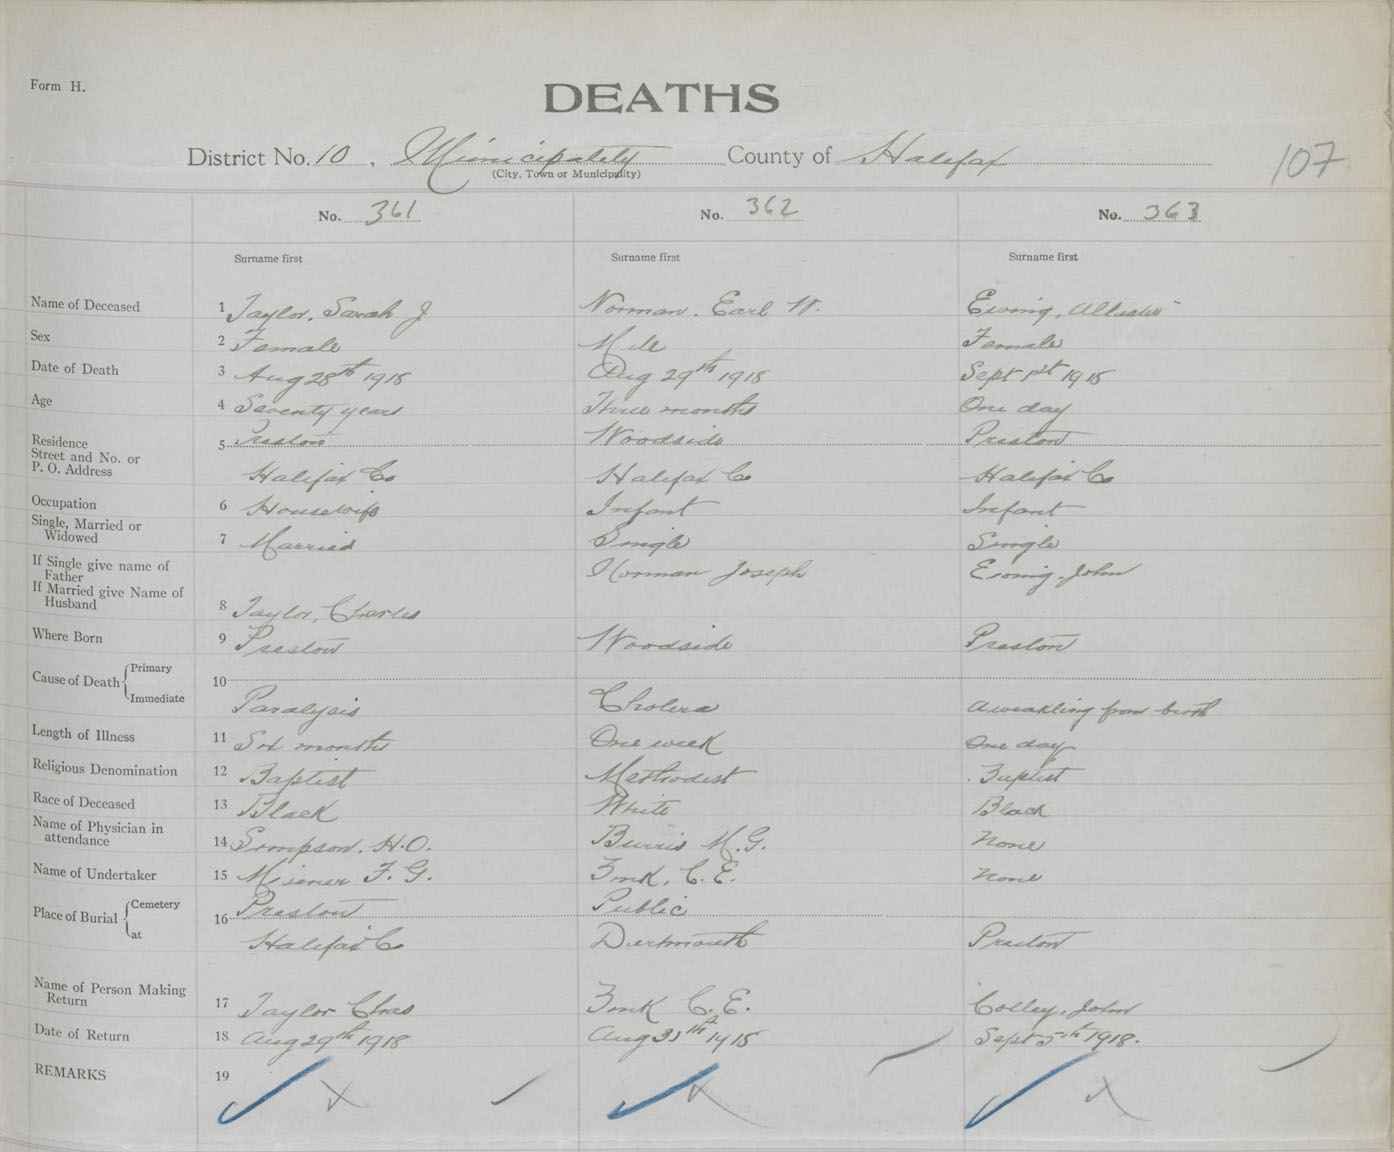 Form H.
DEATHS
District No. 10, Municipality County of Halifax
(City, Town or Municipality)
107
No. 361 No. 362 No. 363
Surname first Surname first Surname first
Name of Deceased 1 Taylor, Sarah J Norman, Earl W. Ewing,
Sex 2 Female Male Female
Date of Death 3 Aug 28th 1918 Aug 29th 1918 Sept 1st 1918
Age 4 Seventy years Three months One day
Residence
Street and No. or
P. O. Address
5 Preston Woodside Preston
Halifax Co Halifax Co Halifax Co
Occupation 6 Housewife Infant Infant
Single, Married or
Widowed
7 Married Single Single
If Single give name of
Father
Norman Joseph Ewing, John
If Married give Name of
Husband
8 Taylor, Charles
Where Born 9 Preston Woodside Preston
Cause of Death Primary
Immediate
10
Paralysis Cholera A weakling from birth
Length of Illness 11 Six months One week One day
Religious Denomination 12 Baptist Methodist Baptist
Race of Deceased 13 Black White Black
Name of Physician in
attendance
14 Simpson, H.O. Burris M.G. None
Name of Undertaker 15 Misener F.G. Zink, C.E. None
Place of Burial Cemetery
at
16 Preston Public
Halifax Co Dartmouth Preston
Name of Person Making
Return
17 Taylor Chas Zink C.E. Colley, John
Date of Return 18 Aug 29th 1918 Aug 1918 Sept 5th 1918.
REMARKS 19